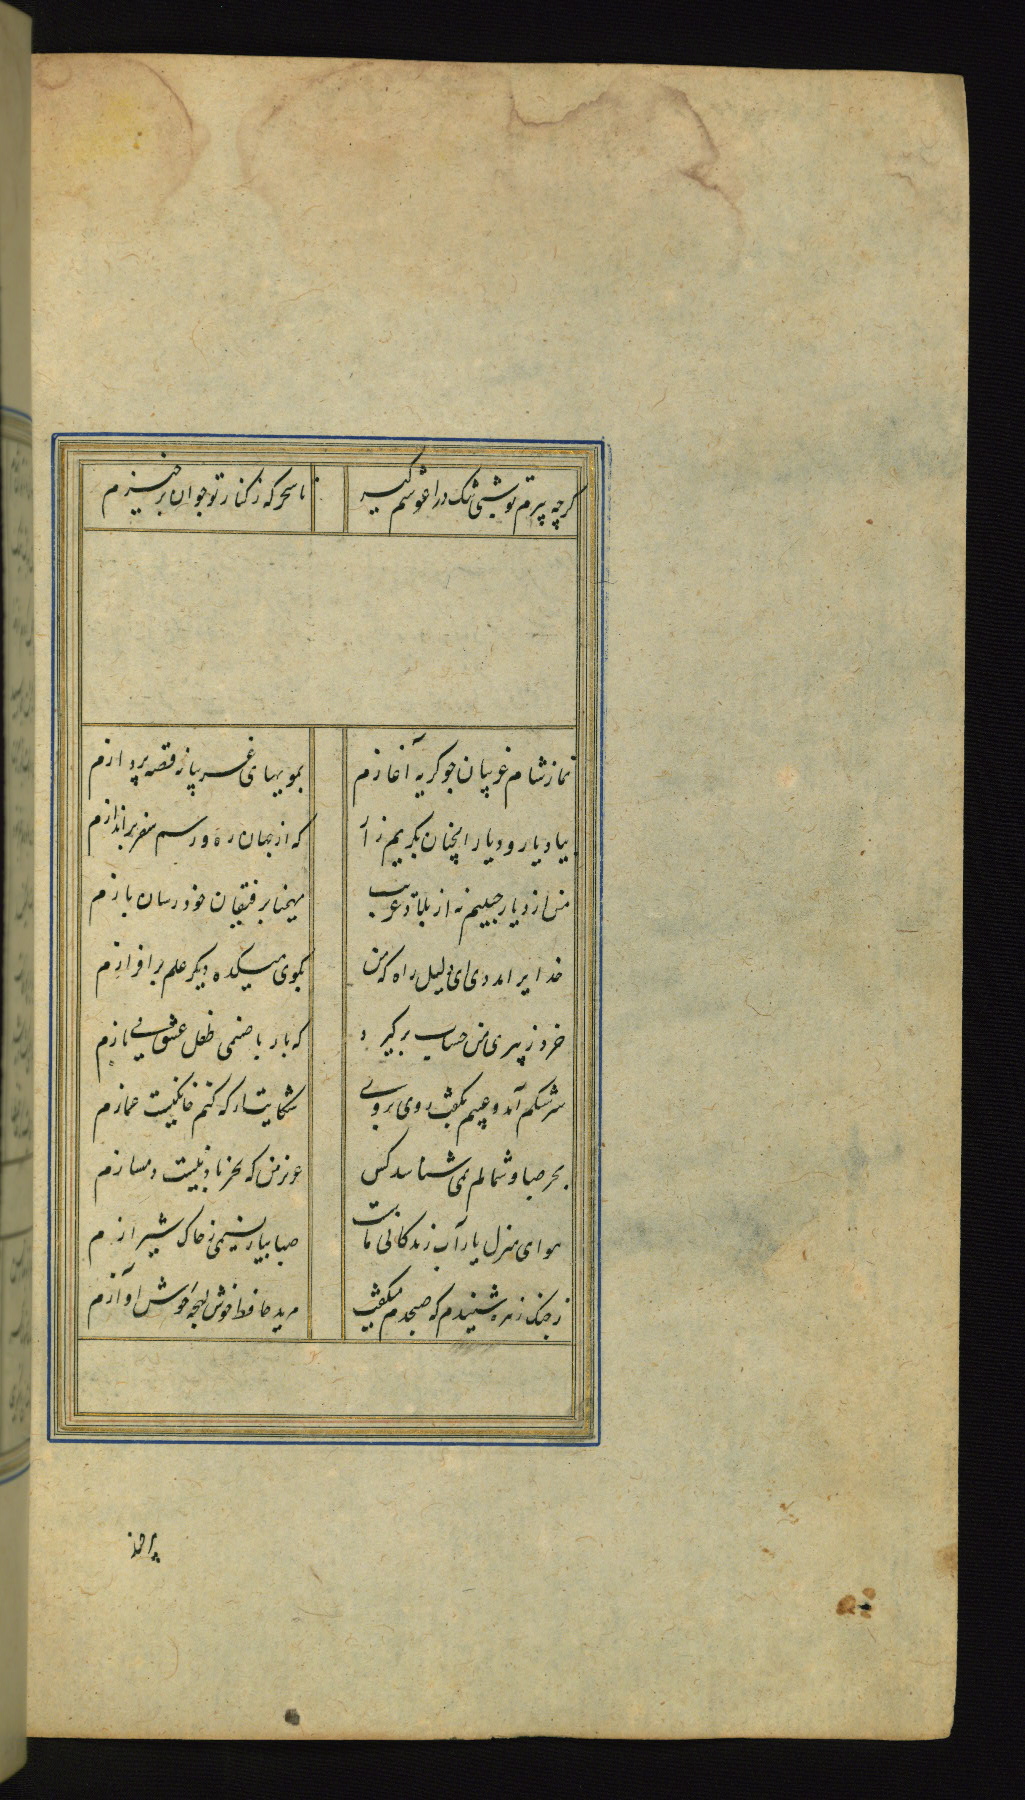 گرچه پیرم تو شبی تنک در اغوشم گیر تا سحرکه ز کنار تو جوان برخیزم
نماز شام غریبان چو کریه آغازم بمویهای غریبانه قصه پردازم
بیاد یار و دیار انچنان بکریم زار که از جهان ره و رسم سفر براندازم
من از دیار حبیبم نه از بلاد غریب مهیمنا برفیقان خود رسان بازم
خدایرا مددی ای دلیل راه که من بکوی میکده دیکر علم برافرازم
خرد ز پیری من حساب برکیرد که باز با صنمی طفل عشق میبازم
سرشکم آمد و عیبم بکفت روی بروی شکایت از که کنم خانکیست غمازم
بجز صبا و شمالم نمی شناسد کس عزیز من که بجز باد نیست دمسازم
هوای منزل یار آب زندکانی ماست صبا بیار نسیمی ز خاک شیرازم
ز چنک زهره شنیدم که صبحدم میکفت مرید حافظ خوش لهجه خوش اوآزم